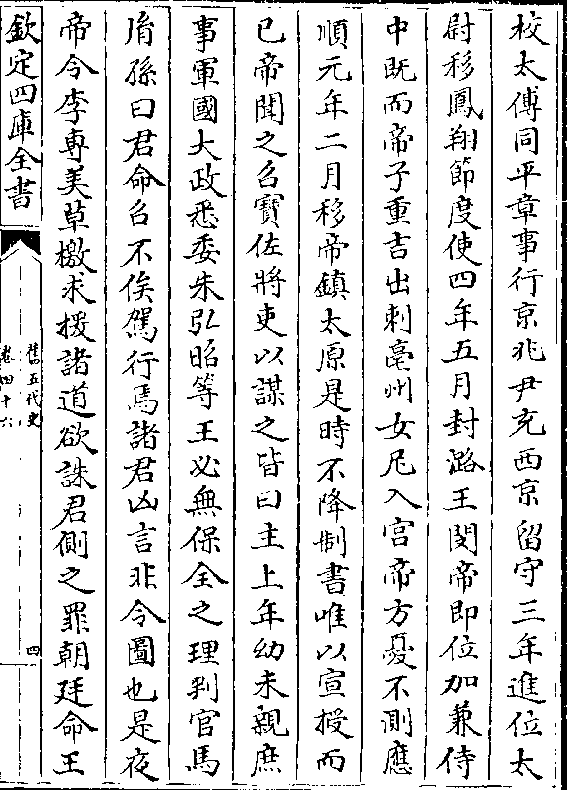 校太傅同平章事行京兆尹充西京留守三年進位太
尉移鳳翔節度使四年五月封潞王閔帝即位加兼侍
中既而帝子重吉出刺亳州女尼入宫帝方憂不測應
順元年二月移帝鎮太原是時不降制書唯以宣授而
已帝聞之召賓佐將吏以謀之皆曰主上年幼未親庶
事軍國大政悉委朱弘昭等王必無保全之理判官馬
𦙍孫曰君命召不俟駕行焉諸君凶言非令圖也是夜
帝令李専美草檄求援諸道欲誅君側之罪朝廷命王
欽定四庫全書
舊五代史
卷四十六
四